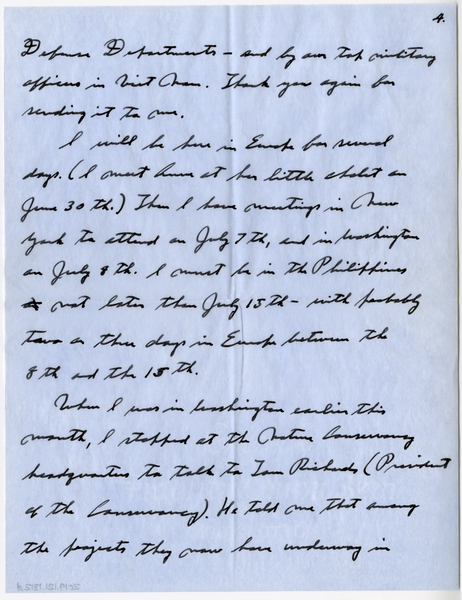 4.
Defense Departments — and by our top military
officers in Viet Nam. Thank you again for
sending it to me.
I will be here in Europe for several
days. (I meet Anne at her little chalet on
June 30 th.) Then I have meetings in New
York to attend on July 7th, and in Washington
on July 8th. I must be in the Philippines
not later than July 15th — with probably
two or three days in Europe between the
8th and the 15th.
When I was in Washington earlier this
month, I stopped at the Nature Conservancy
headquarters to talk to Tom Richards (President
of the Conservancy). He told me that among
the projects they now have underway in